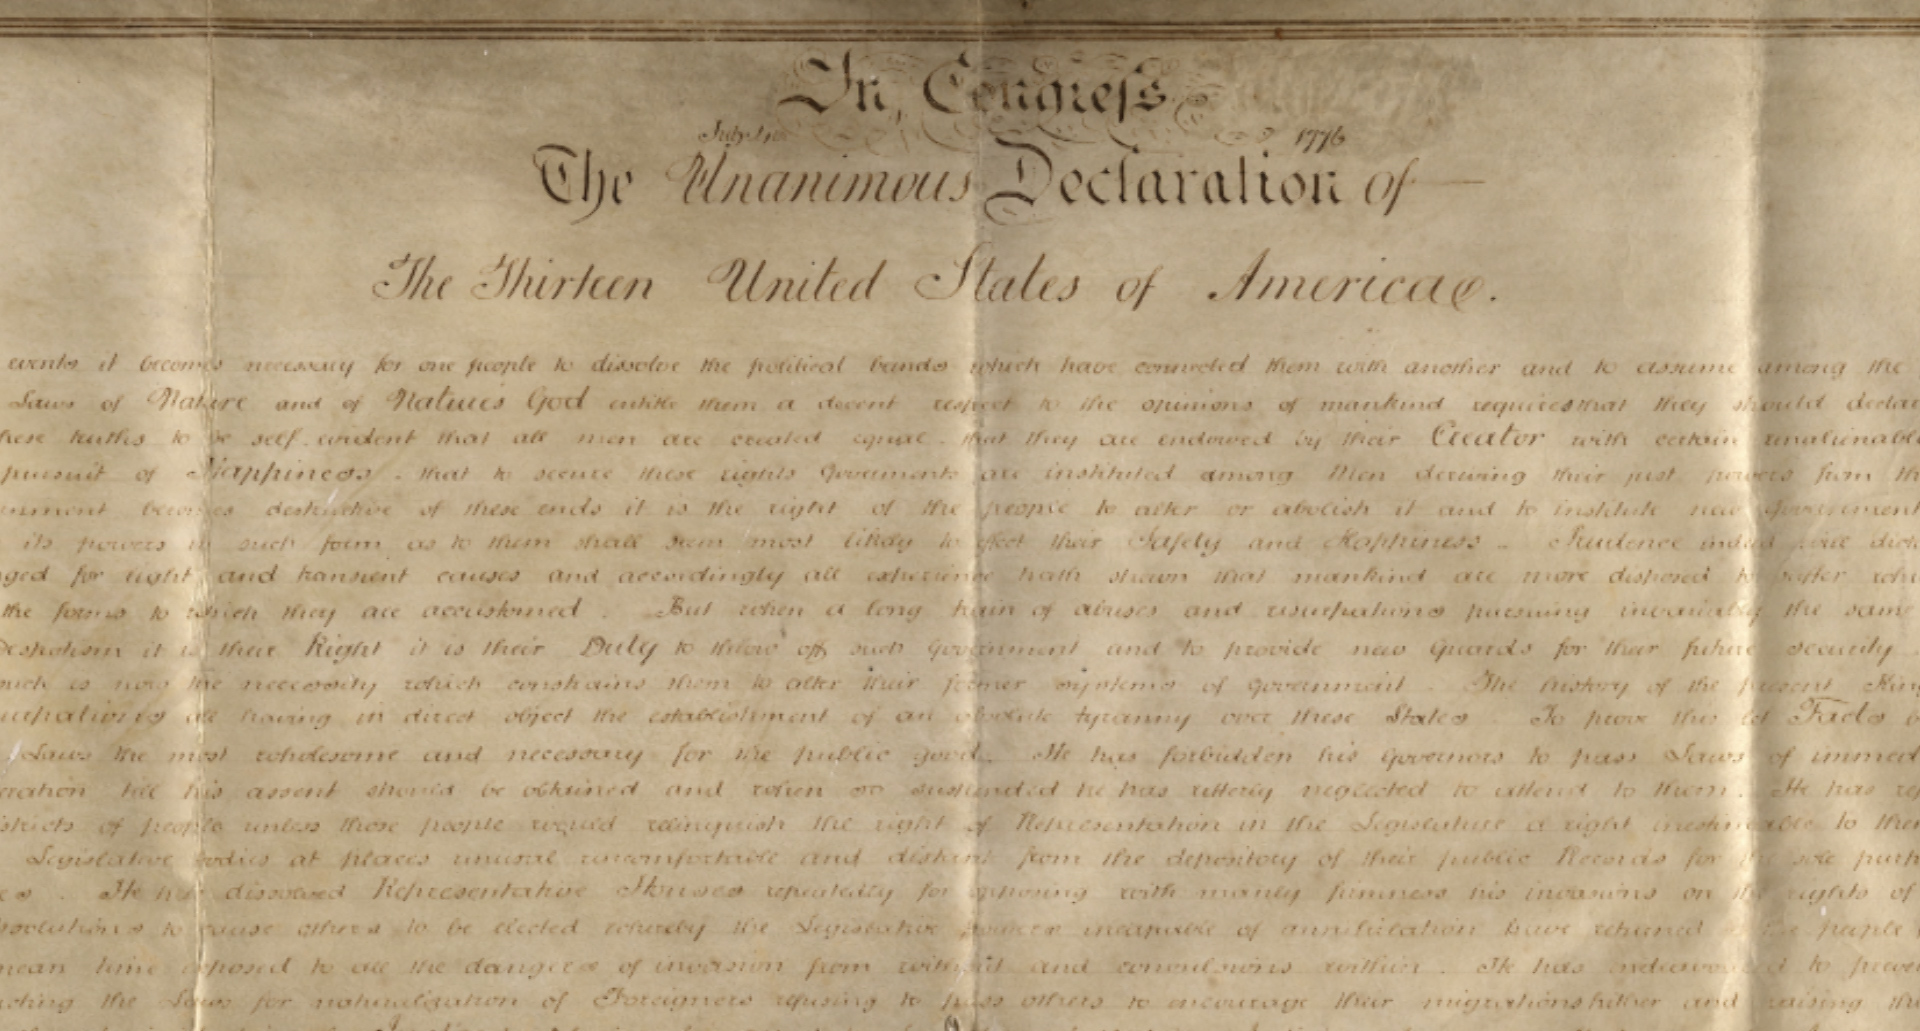 In Congreſs
July 4th 1776
The Unanimous Declaration of
The Thirteen United States of America
events it becomes necessary for one people to dissolve the political bands which have connected them with another and to assume among the
Laws of Nature and of Natures God entitle them a decent respect to the opinions of mankind requires that they should declar
hese truths to be self evident that all men are created equal that they are endowed by their Creator with certain unalienable
pursuit of Happiness . that to secure these rights Goverments are instituted among Men deriving their just powers from th
ernment becomes destructive of these ends it is the right of the people to alter or abolish it and to institute new Government
its powers in such form as to them shall seem most likely to effect their Safety and Happiness . Prudence indeed will dict
ged for light and transient causes and accordingly all experience hath shewn that mankind are more disposed to suffer whi
the forms to which they are accustomed . But when a long train of abuses and usurpations pursuing invariably the same
Despotism it is their Right it is their Duty to throw off such Government and to provide new Guards for their future security .
such is now the necessity which constrains them to alter their former systems of Government . The history of the present King
surpations all having in direct object the establishment of an absolute tyranny over these States . To prove this let Facts b
Laws the most wholesome and necessary for the public good . He has forbidden his Governors to pass Laws of immed
eration till his assent should be obtained and when so suspended he has utterly neglected to attend to them . He has ref
istricts of people unless those people would relinquish the right of Representation in the Legislature a right inestimable to them
Legislative bodies at places unusual uncomfortable and distant from the depository of their public Records for the sole purp
es . He has dissolved Representative Houses repeatedly for opposing with manly firmness his invasions on the rights of
issolutions to cause others to be elected whereby the Legislative powers incapable of annihilation have returned to the people
mean time exposed to all the dangers of invasion from without and convulsions within . He has endeavoured to preven
ucting the Laws for naturalization of Foreigners refusing to pass others to encourage their migrations hither and raising the